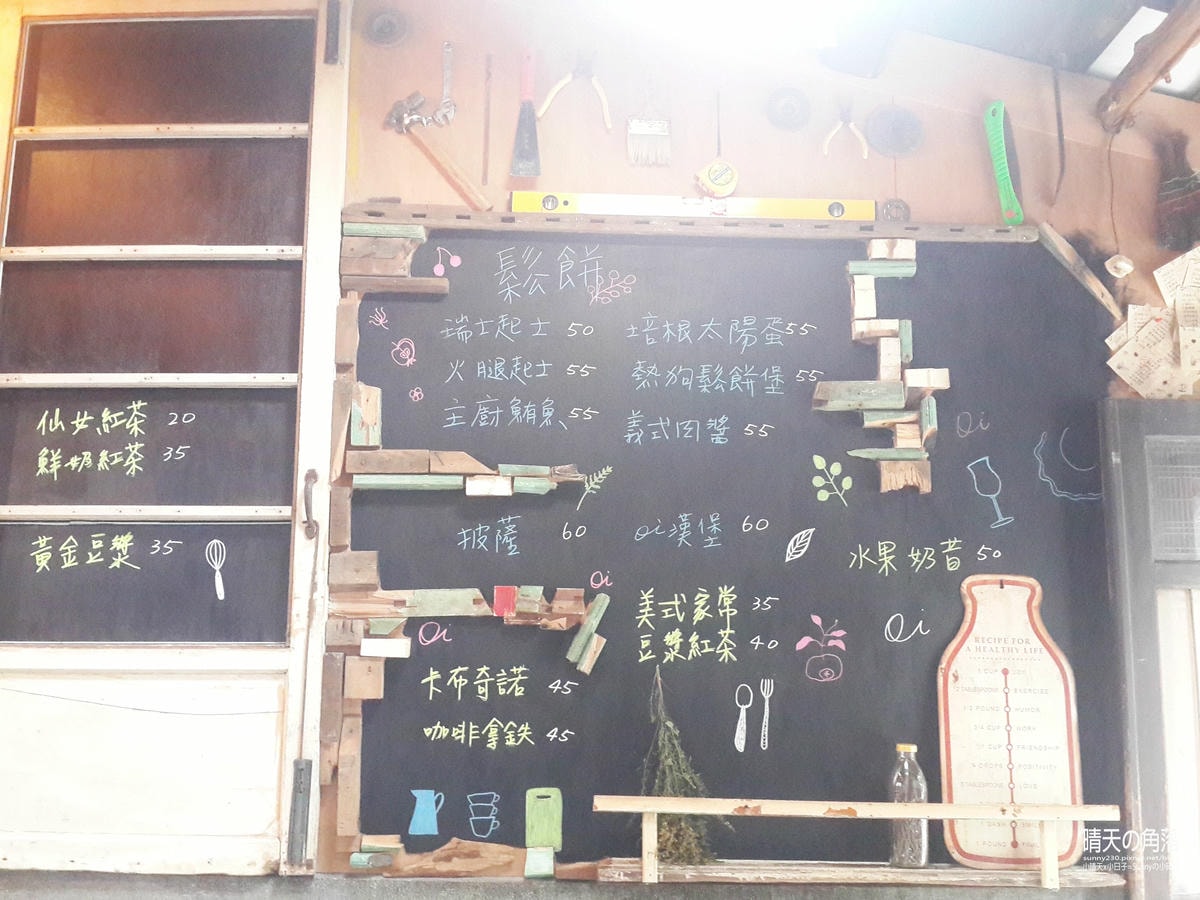 仙女紅茶 20
鮮奶紅茶 35
黃金豆漿 35
鬆餅
瑞士起士 50
火腿起士 55
主廚鮪魚 55
培根太陽蛋 55
熱狗鬆餅堡 55
義式肉醬 55
披薩 60
oi漢堡 60
Oi
Oi
卡布奇諾 45
咖啡拿鉄 45
美式家常 35
豆漿紅茶 40
Oi
水果奶昔 50
Oi
RECIPE FOR
A HEALTHY LIFE
1 CUP JOY
2 TABLESPOONS EXERCISE
1/2 POUND HUMOR
3/4 CUP WORK
CUP FRIENDSHIP
4 DROPS POSITIVITY
TABLESPOONS LOVE
1 DASH
1 POUND
晴天の角落
sunny230.pixnet.net/